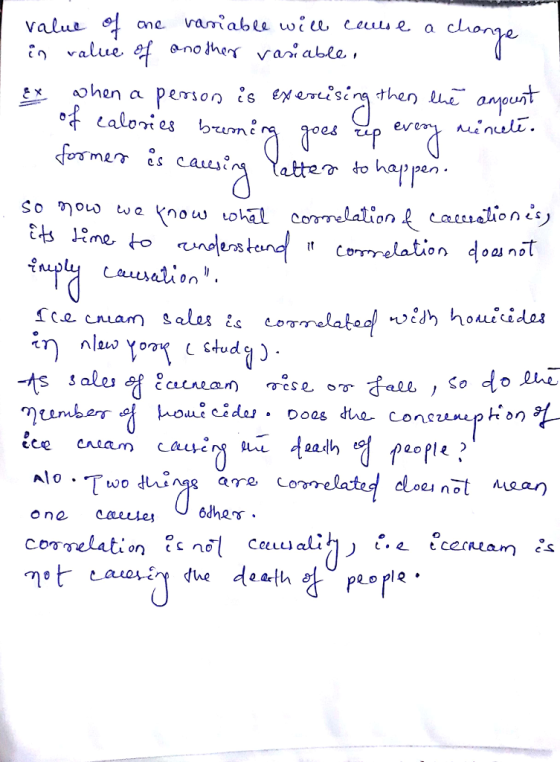 value of one variable will cause a change
in value of another variable.
Ex when a person is exercising then the amount
of calories burning goes up every minute.
former is causing latter to happen.
so now we know what correlation & causation is,
its time to understand "correlation does not
imply causation".
Ice cream sales is correlated with homicides
in New york (study).
As sales of icecream rise or fall, so do the
number of homicides. Does the consumption of
ice cream causing the death of people?
No. Two things are correlated does not mean
one causes other.
correlation is not causality, i.e icecream is
not causing the death of people.